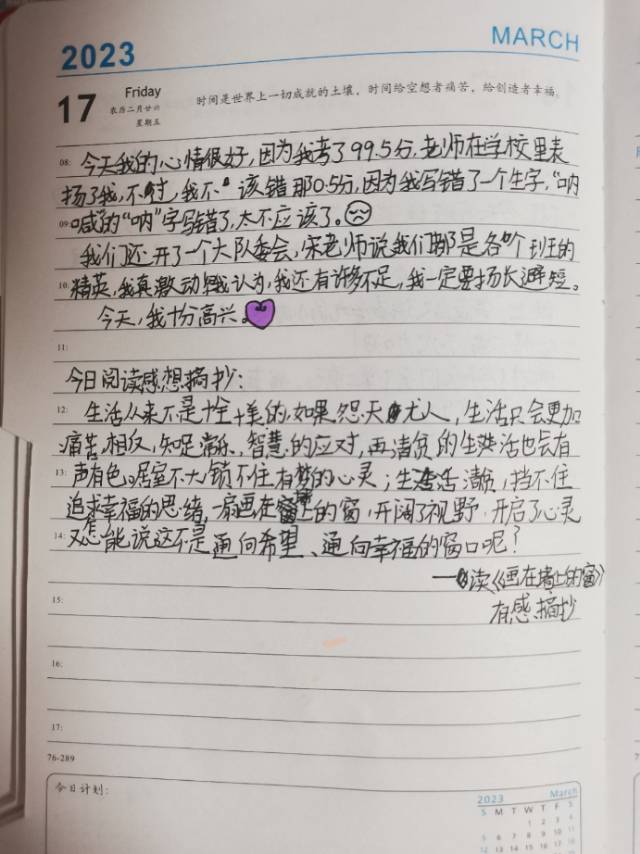 2023
MARCH
17
Friday
农历二月廿六
星期五
时间是世界上一切成就的土壤。时间给空想者痛苦，给创造者幸福。
08:
今天我的心情很好，因为我考了99.5分，老师在学校里表
扬了我，不过，我不该错那0.5分，因为我写错了一个生字，“呐
09:
喊”的“呐”字写错了，太不应该了。
我们还开了一个大队委会，宋老师说我们都是各个班的
10:
精英，我真激动，我认为，我还有许多不足，我一定要扬长避短。
今天，我十分高兴。
11:
今日阅读感想摘抄：
12:
生活从来不是十全十美的，如果怨天尤人，生活只会更加
痛苦，相反，知足常乐，智慧的应对，再清贫的生活也会有
13:
声有色。居室不大，锁不住有梦的心灵；生活清贫，挡不住
追求幸福的思绪，一扇画在墙上的窗，开阔了视野，开启了心灵
14:
又怎能说这不是通向希望、通向幸福的窗口呢？
——读《画在墙上的窗》
有感摘抄
15:
16:
17:
76-289
今日计划：
2023 March
S M T W T F S
1 2 3 4
5 6 7 8 9 10 11
12 13 14 15 16 17 18